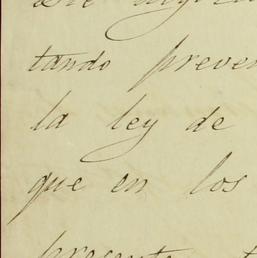 tando preven
la ley de
que en los
presente